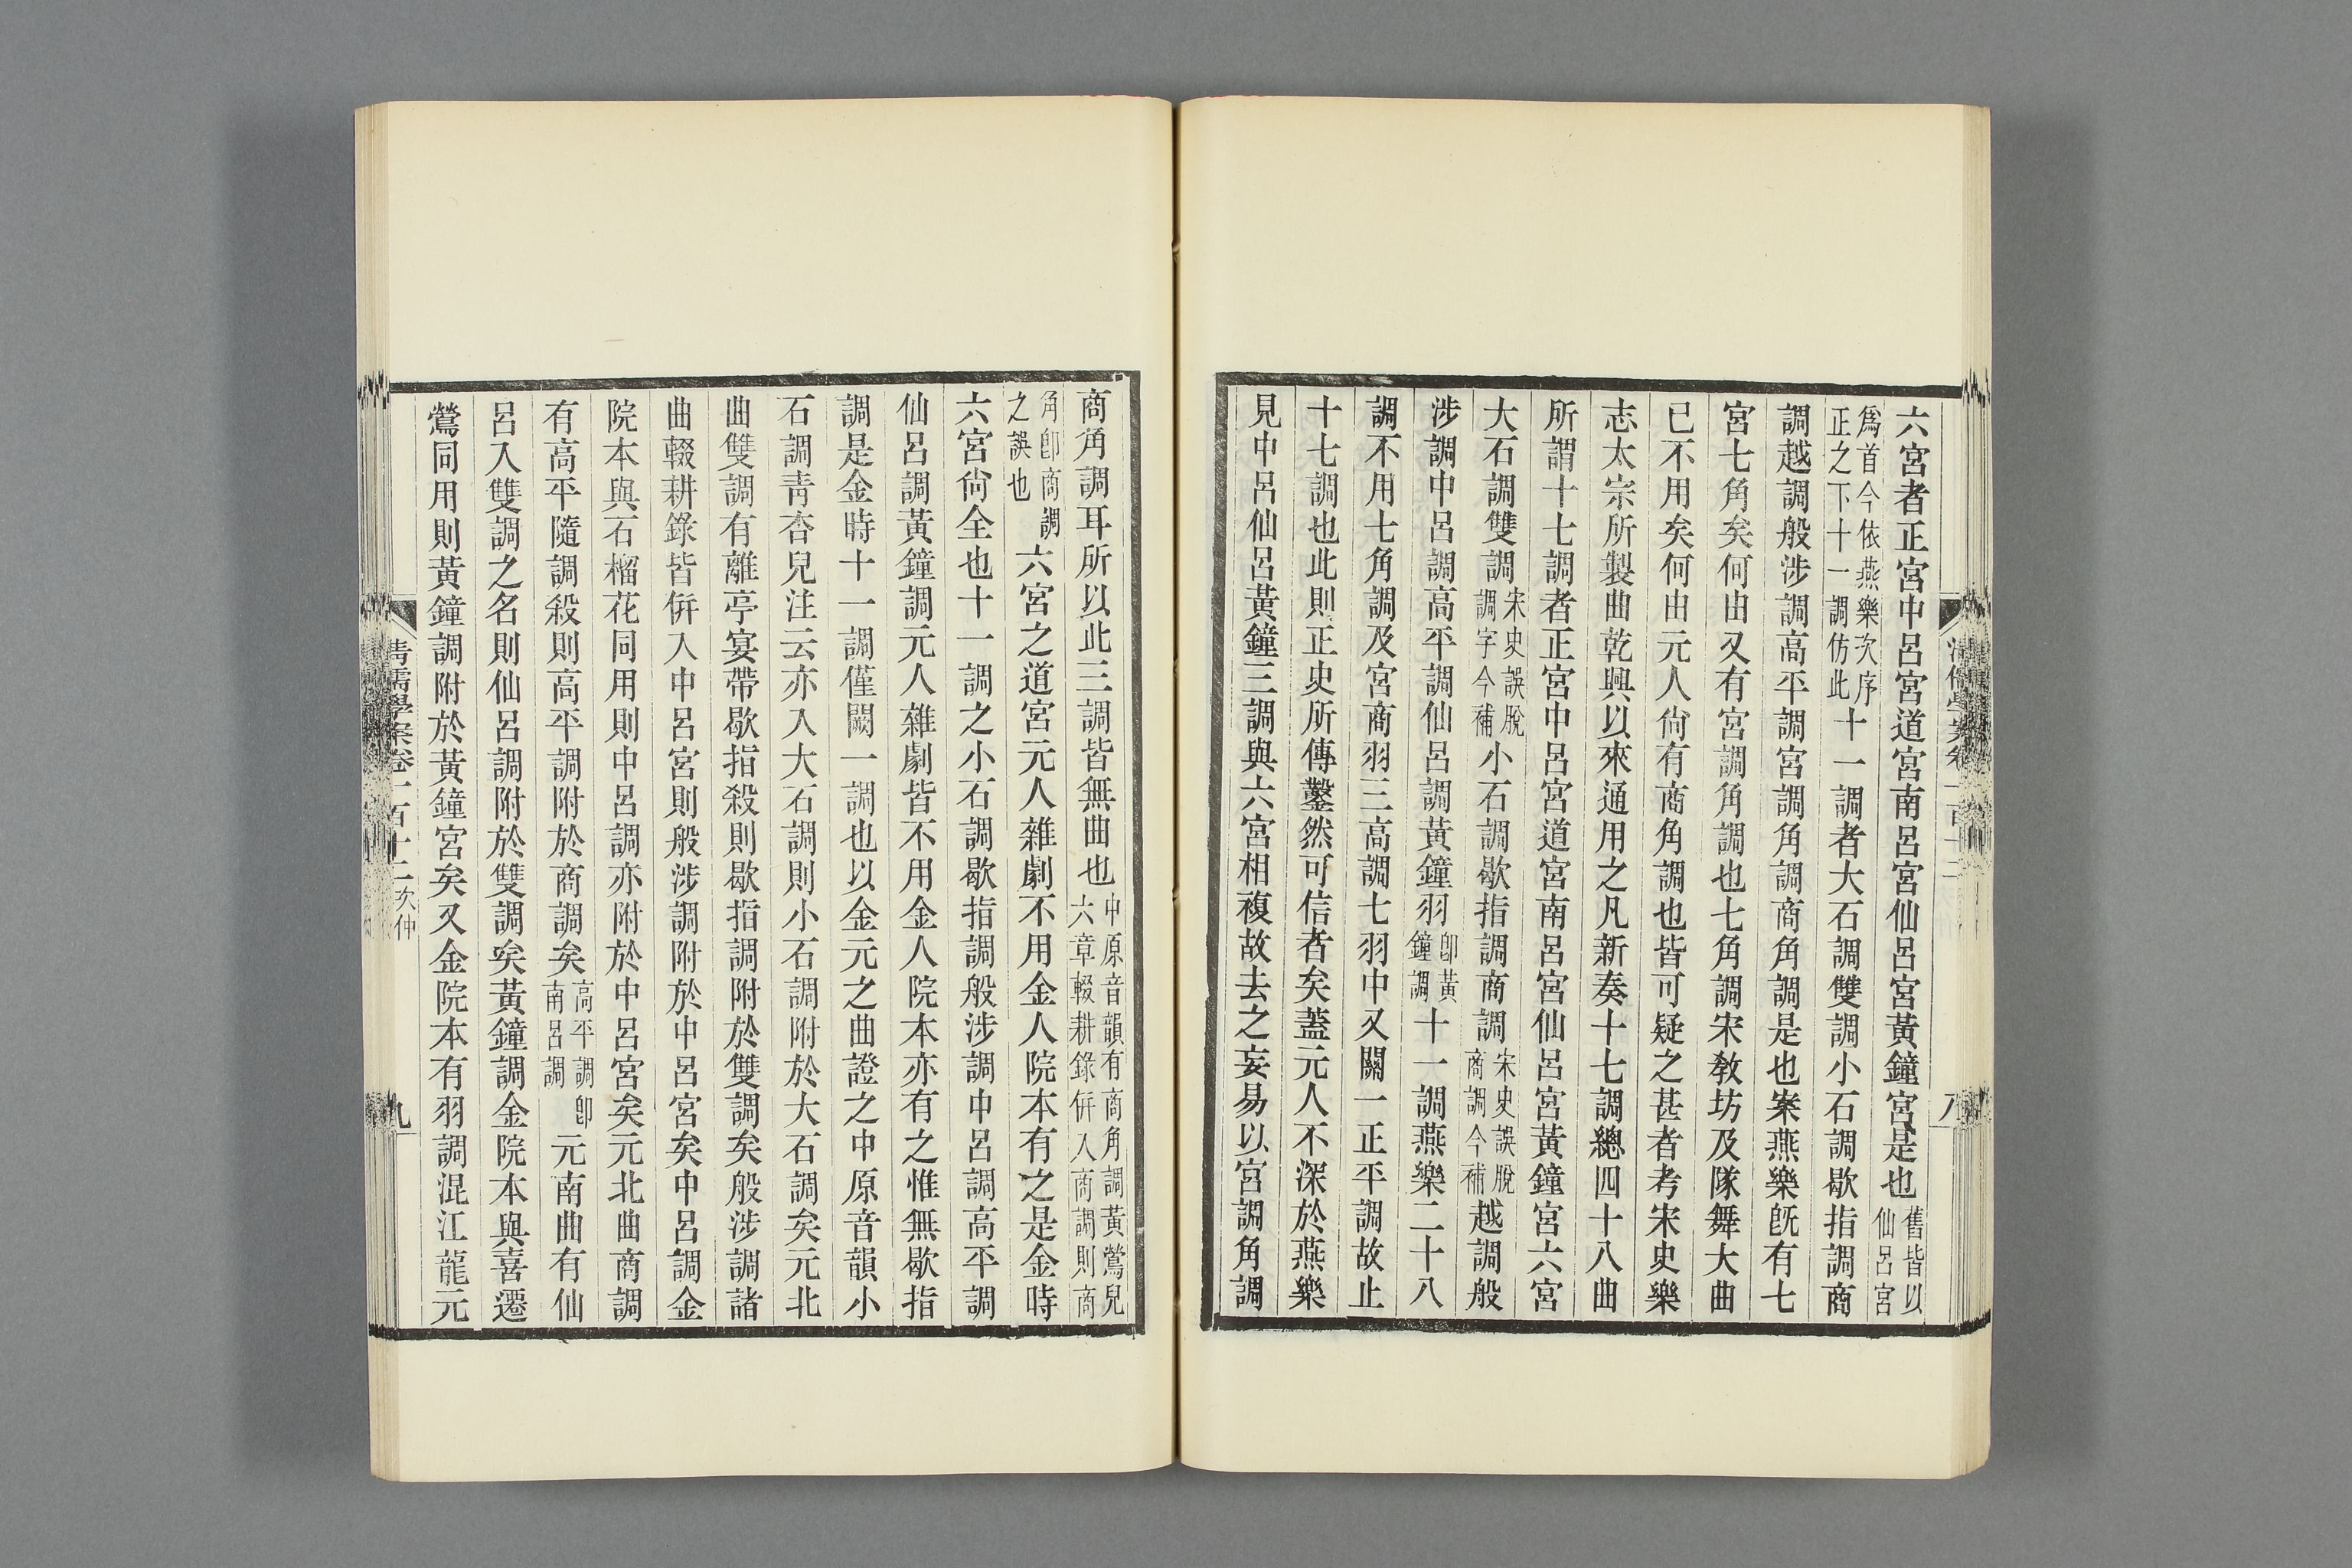 六宮者正宮中呂宮道宮南呂宮仙呂宮黃鐘宮是也舊皆以仙呂宮
爲首今依燕樂次序正之下十一調仿此十一調者大石調雙調小石調歇指調商
調越調般涉調高平調宮調角調商角調是也案燕樂旣有七
宮七角矣何由又有宮調角調也七角調宋敎坊及隊舞大曲
已不用矣何由元人尙有商角調也皆可疑之甚者考宋史樂
志太宗所製曲乾興以來通用之凡新奏十七調總四十八曲
所謂十七調者正宮中呂宮道宮南呂宮仙呂宮黃鐘宮六宮
大石調雙調宋史誤脫調字今補小石調歇指調商調宋史誤脫商調今補越調般
涉調中呂調高平調仙呂調黃鐘羽卽黃鐘調十一調燕樂二十八
調不用七角調及宮商羽三高調七羽中又闕一正平調故止
十七調也此則正史所傳鑿然可信者矣蓋元人不深於燕樂
見中呂仙呂黃鐘三調與六宮相複故去之妄易以宮調角調
商角調耳所以此三調皆無曲也中原音韻有商角調黃鶯兒六章輟耕錄倂入商調則商
角卽商調之誤也六宮之道宮元人雜劇不用金人院本有之是金時
六宮尙全也十一調之小石調歇指調般涉調中呂調高平調
仙呂調黃鐘調元人雜劇皆不用金人院本亦有之惟無歇指
調是金時十一調僅闕一調也以金元之曲證之中原音韻小
石調靑杏兒注云亦入大石調則小石調附於大石調矣元北
曲雙調有離亭宴帶歇指殺則歇指調附於雙調矣般涉調諸
曲輟耕錄皆倂入中呂宮則般涉調附於中呂宮矣中呂調金
院本與石榴花同用則中呂調亦附於中呂宮矣元北曲商調
有高平隨調殺則高平調附於商調矣高平調卽南呂調元南曲有仙
呂入雙調之名則仙呂調附於雙調矣黃鐘調金院本與喜遷
鶯同用則黃鐘調附於黃鐘宮矣又金院本有羽調混江龍元
清儒學案卷一百十二 次仲
九